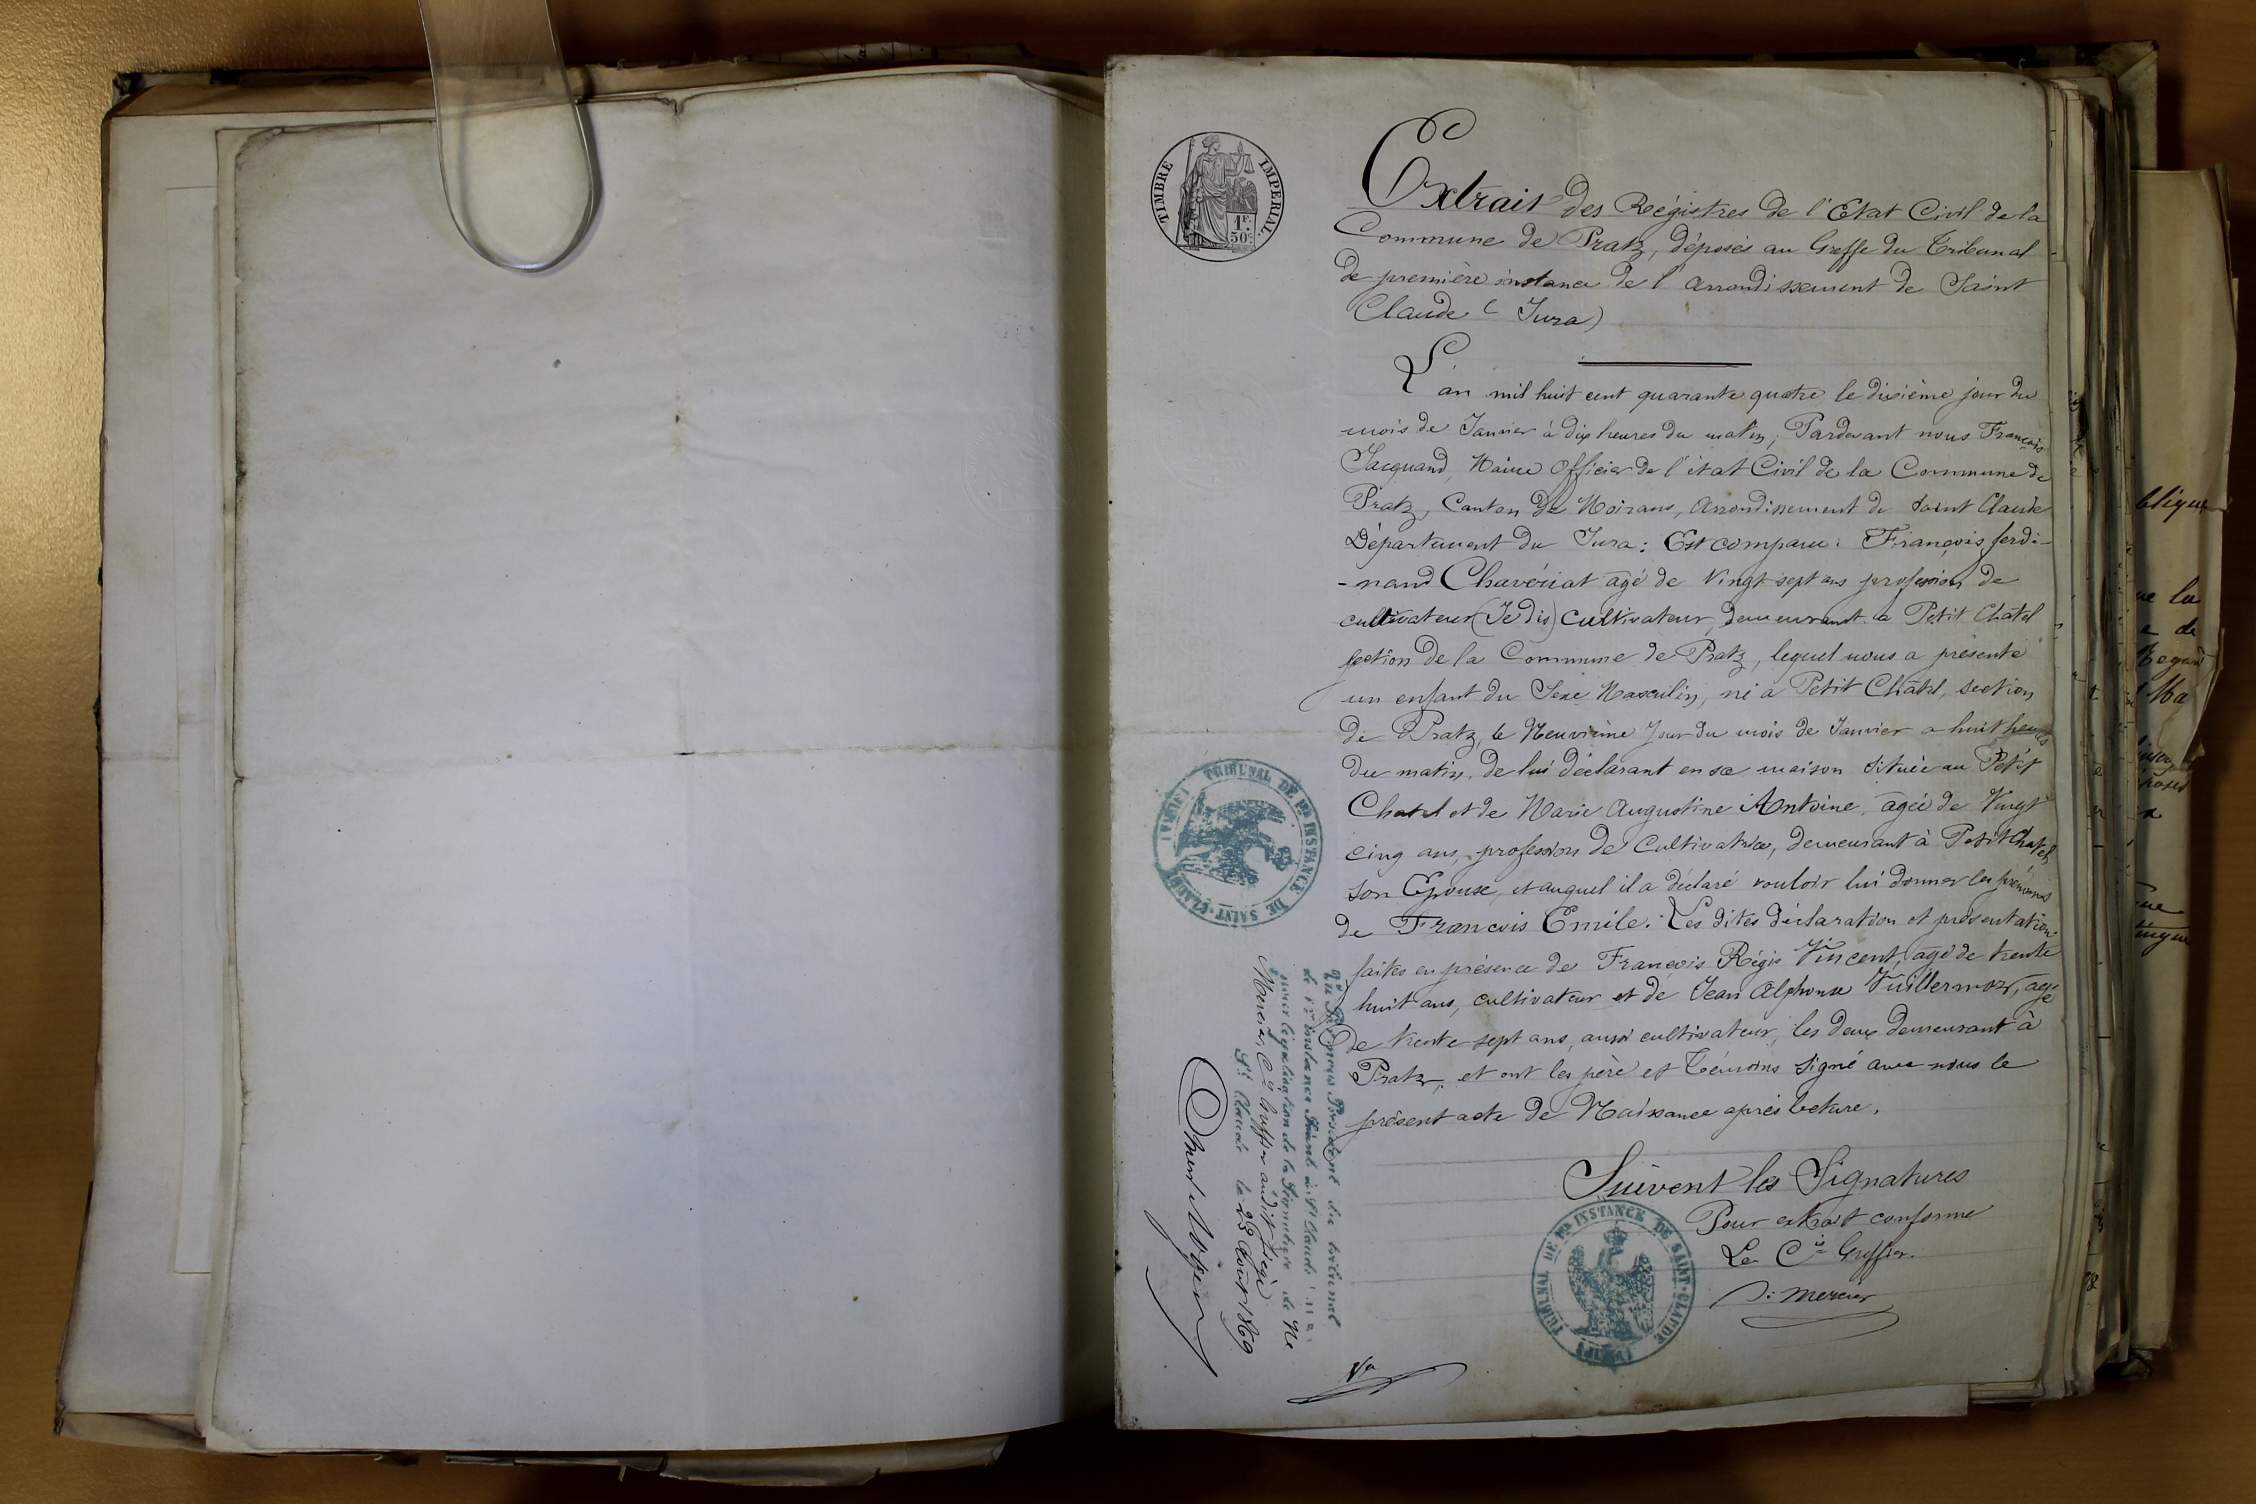 TIMBRE IMPERIAL
1F.
50c.
Extrait des Régistres de l'Etat Civil de la
Commune de Pratz, déposés au Greffe du Tribunal
de première instance de l'arrondissement de Saint
Claude (Jura)
L'an mil huit cent quarante quatre, le dixième jour du
mois de Janvier à dix heures du matin, Pardevant nous François
Jacquand, Maire Officier de l'état Civil de la Commune de
Pratz, Canton de Moirans, arrondissement de Saint Claude
Département du Jura : Est comparu : François ferdi-
-nand Chavériat agé de vingt sept ans profession de
cultivateur (Je dis) Cultivateur, demeurant a Petit Châtel
section de la Commune de Pratz, lequel nous a présenté
un enfant du Sexe Masculin, né a Petit Châtel, section
de Pratz, le Neuvième Jour du mois de Janvier a huit heures
du matin, de lui déclarant en sa maison située au Petit
Chatel et de Marie Augustine Antoine, agée de Vingt
cinq ans, profession de Cultivatrice, demeurant à Petit Chatel,
son Epouse, et auquel il a déclaré vouloir lui donner les prénoms
de François Emile. Les dites déclaration et présentation
faites en présence de François Régis Vincent, agé de trente
huit ans, cultivateur et de Jean Alphonse Vuillermoz, agé
de trente-sept ans, aussi cultivateur, les deux demeurant à
Pratz, et ont les père et témoins signé avec nous le
présent acte de Naissance après lecture.
Suivent les Signatures
Pour extrait conforme
Le Cis Greffier
Mercier
TRIBUNAL DE 1re INSTANCE DE SAINT-CLAUDE (JURA)
TRIBUNAL DE 1re INSTANCE DE SAINT-CLAUDE (JURA)
Vu par nous Président du tribunal
de 1re instance séant à St Claude
pour légalisation de la Signature de Me
Mercier, Cis Greffier audit siège
St Claude le 23 Août 1869
blique
ue la
e de